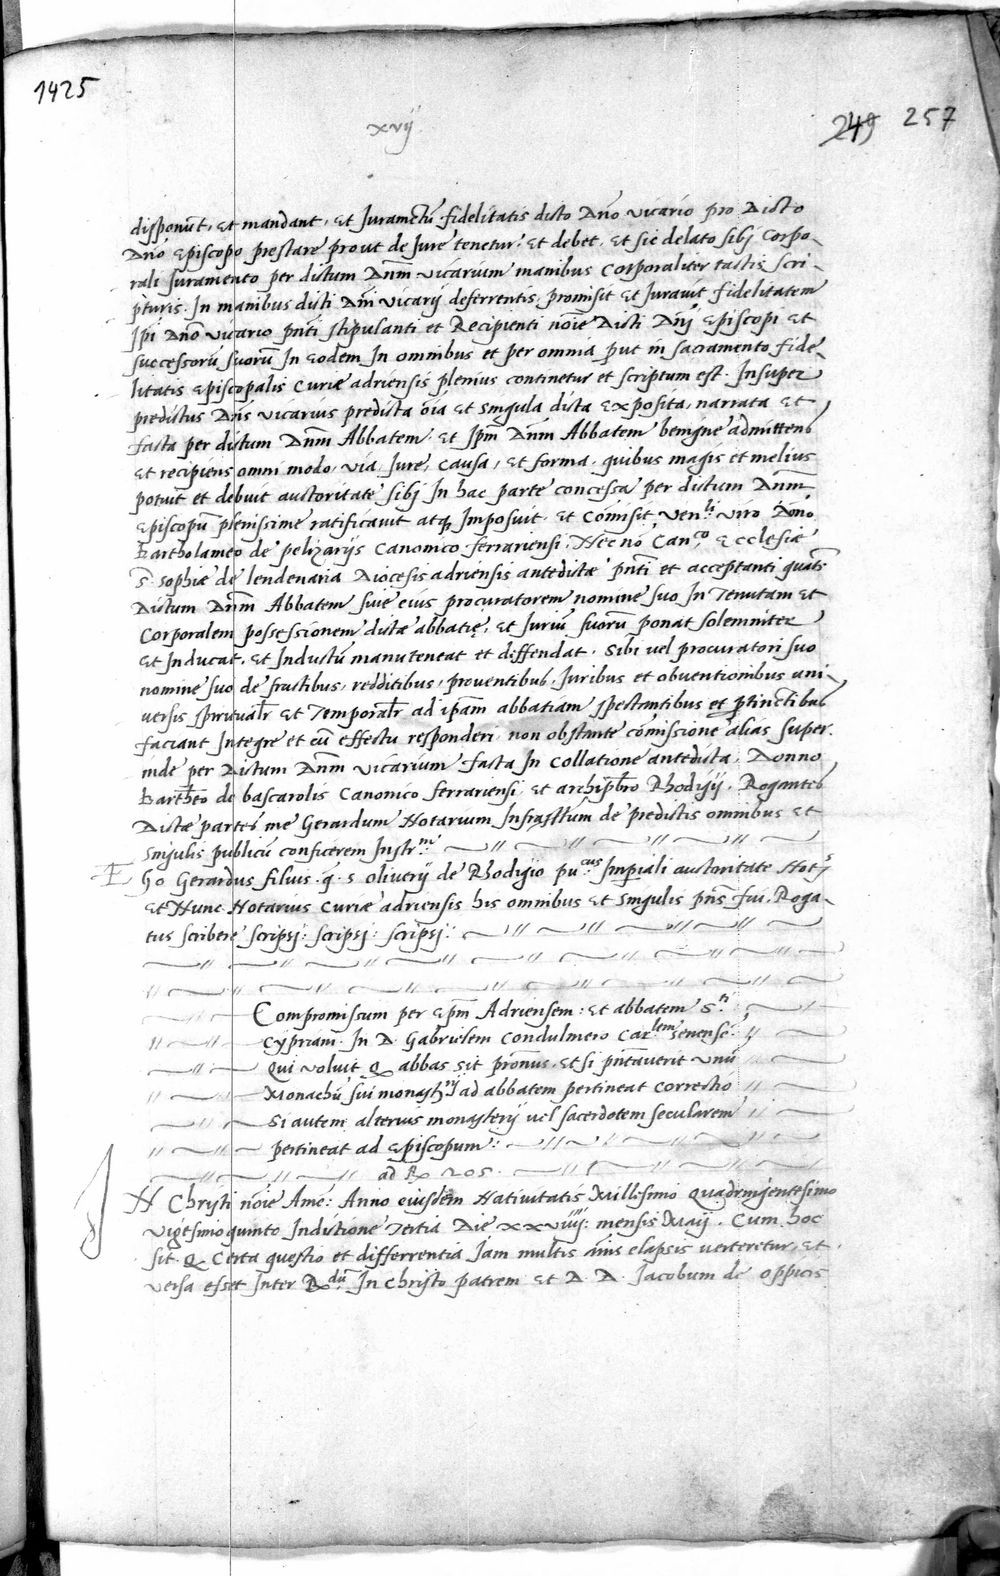 1425
xvij
249 257
disponūt, et mandant, et Iuramētū fidelitatis dicto Dn̄o vicario pro dicto
Dn̄o Episcopo prestare prout de Iure tenetur, et debet, et sic delato sibj corpo-
rali Iuramento per dictum Dnm̄ vicarium manibus corporaliter tactis scri-
pturis. In manibus dicti Dn̄i vicarij defferentis, promisit et Iurauit fidelitatem
Ipi Dn̄o vicario pn̄ti stipulanti et Recipienti nōie dicti Dn̄j Episcopi et
successorū suorū In eodem In omnibus et per omnia put in sacramento fide-
litatis Episcopalis Curiæ adriensis plenius continetur et scriptum est. Insuper
predictus Dn̄s vicarius predicta oīa et singula dicta exposita, narrata et
facta per dictum Dnm̄ Abbatem. et Ipm̄ Dnm̄ Abbatem benigne admittens
et recipiens omni modo, via, Iure, causa, et forma, quibus magis et melius
potuit et debuit auctoritate sibj In hac parte concessa per dictum Dnm̄
Episcopū plenissime ratificauit atq; Imposuit. et Cōmisit ven.li viro Dōno
Bartholameo de pelizarijs Canonico ferrariensi, Nec nō Can.co Ecclesiæ
S. Sophiæ de lendenaria Diocesis adriensis antedictæ pn̄ti et acceptanti quat̄s
Dictum Dnm̄ Abbatem siue eius procuratorem nomine suo In Tenutam et
Corporalem possessionem dictæ abbatię, et Iuriū suorū ponat solemniter
et Inducat, et Inductū manuteneat et diffendat. Sibi vel procuratori suo
nomine suo de fructibus, redditibus, prouentibus, Iuribus et obuentionibus uni-
uersis spiritualr̄ et Temporalr̄ ad ipsam abbatiam spectantibus et ptinētibus
faciant Integre et cū effectu responderi, non obstante cōmissione alias super
inde per Dictum Dnm̄ vicarium facta In collatione antedicta, Donno
Barth̄eo de bascarolis Canonico ferrariensi, et archipbr̄o Rhodigij. Rogantes
Dictæ partes me Gerardum Notarium Infrasc̄tum de predictis omnibus et
singulis publicū conficerem Instr.m
Ego Gerardus filius q. s. oliuerij de Rhodigio pu.cus Imperiali auctoritate Not.s
et Nunc Notarius Curiæ adriensis his omnibus et singulis pn̄s fui, Roga-
tus scribere scripsj: scripsj: scripsj:
Compromissum per Epm̄ Adriensem: et abbatem S.ti
Cypriani. In D. Gabrielem Condulmero Car.lem senensē.
Qui voluit q abbas sit pronūs, et si pn̄tauerit unū
Monachū sui monast.rij ad abbatem pertineat correctio
Si autem alterius monasterij vel sacerdotem secularem
pertineat ad Episcopum:
ad R 205.
IN Christi nōie Amē: Anno eiusdem Natiuitatis Millesimo Quadringentesimo
vigesimoquinto Indictione Tertia Die xxviiij: mensis Maij. Cum hoc
sit q Certa questio et differrentia Iam multis ānis elapsis uerteretur, et
versa esset Inter R.dū In Christo patrem et D. D. Iacobum de oppicis